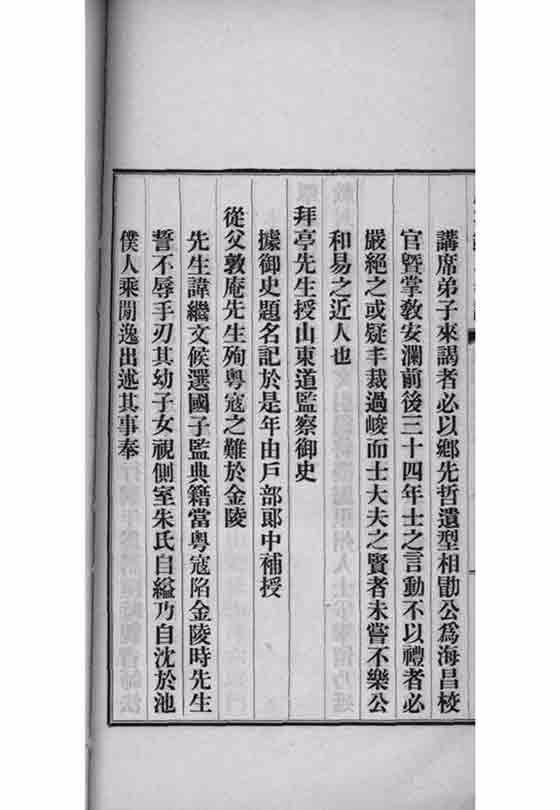 講席弟子來謁者必以鄕先哲遺型相勖公爲海昌校
官曁掌敎安瀾前後三十四年士之言動不以禮者必
嚴絕之或疑丰裁過峻而士大夫之賢者未嘗不樂公
和易之近人也
拜亭先生授山東道監察御史
據御史題名記於是年由戶部郞中補授
從父敦庵先生殉粵寇之難於金陵
先生諱繼文候選國子監典籍當粵寇陷金陵時先生
誓不辱手刃其幼子女視側室朱氏自縊乃自沈於池
僕人乘閒逸出述其事奉